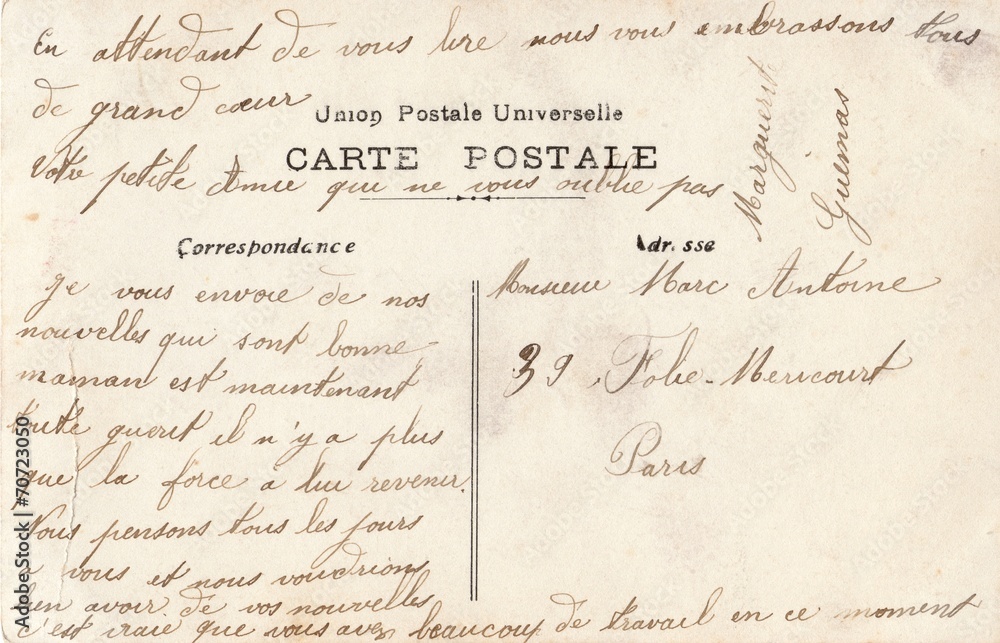 En attendant de vous lire nous vous embrassons tous
de grand cœur
Union Postale Universelle
CARTE POSTALE
Votre petite Amie qui ne vous oublie pas
Marguerit
Guermas
Correspondance
Je vous envoie de nos
nouvelles qui sont bonne
maman est maintenant
toute guerit il n'y a plus
que la force a lui revenir.
Nous pensons tous les jours
a vous et nous voudrions
en avoir de vos nouvelles
c'est vraie que vous avez beaucoup de travail en ce moment
Adr. sse
Monsieur Marc Antoine
39 Folie-Mericourt
Paris
Adobe Stock | #70723050